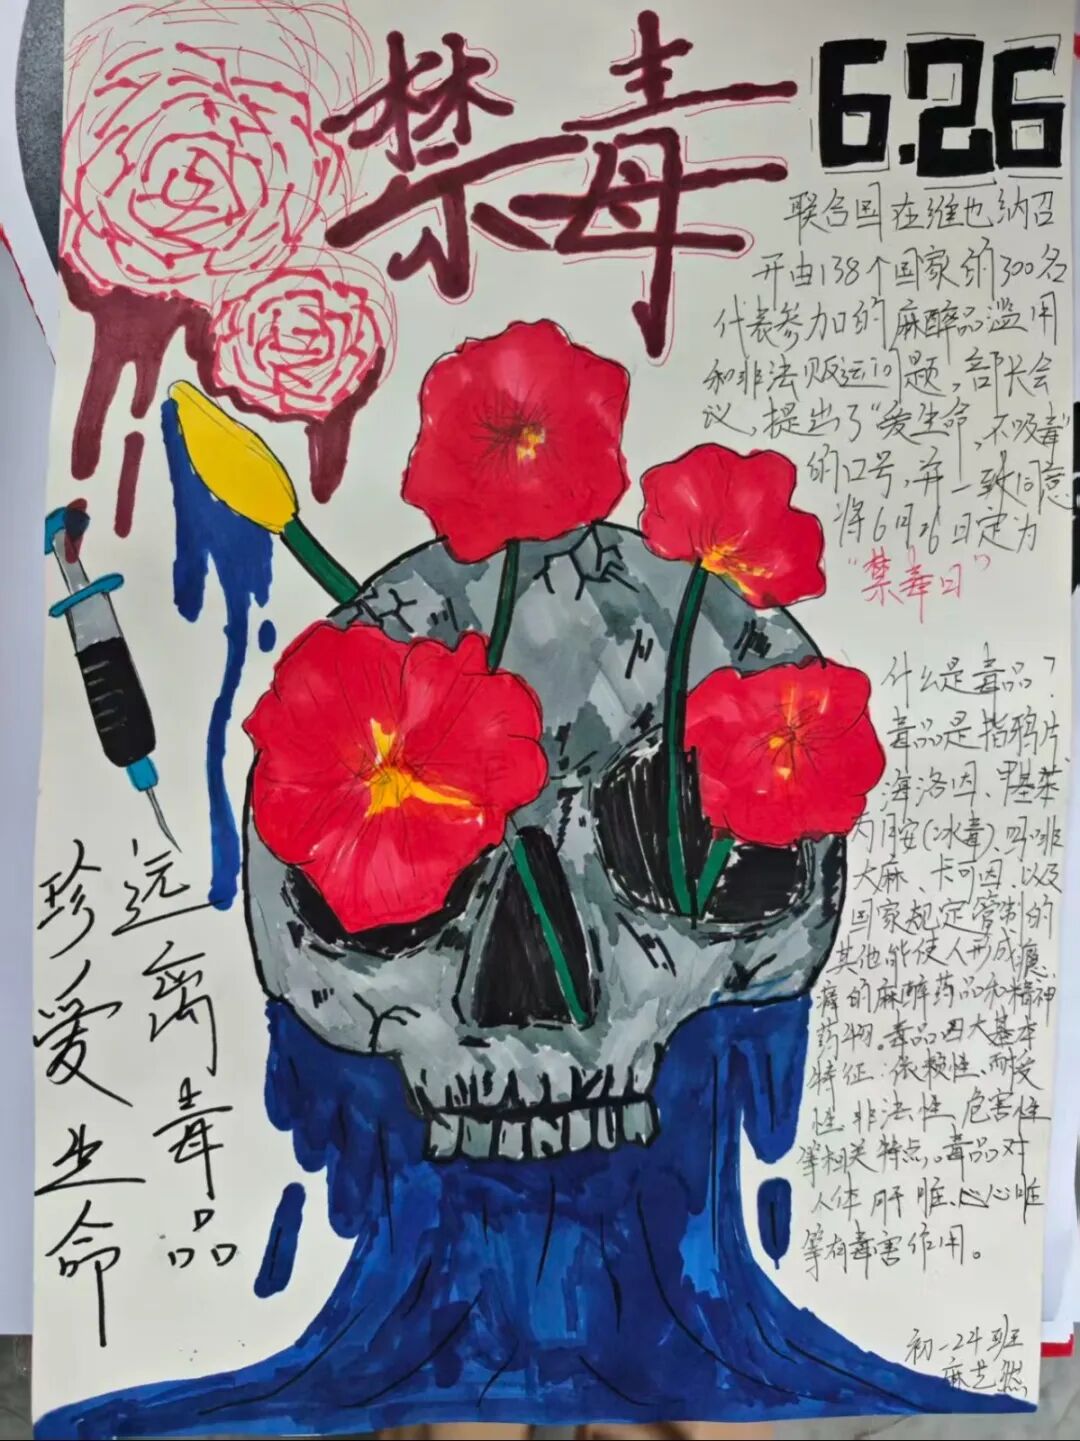 禁毒
6.26
联合国在维也纳召
开由138个国家的300名
代表参加的麻醉品滥用
和非法贩运问题，部长会
议，提出了“爱生命，不吸毒”
的口号，并一致同意
将6月26日定为
“禁毒日”
什么是毒品？
毒品是指鸦片、
海洛因、甲基苯
丙胺(冰毒)、吗啡
大麻、卡可因、以及
国家规定管制的
其他能使人形成瘾
癖的麻醉药品和精神
药物。毒品四大基本
特征：依赖性、耐受
性、非法性、危害性
等相关特点。毒品对
人体肝脏、心脏
等有毒害作用。
远离毒品
珍爱生命
初一24班
麻艺然